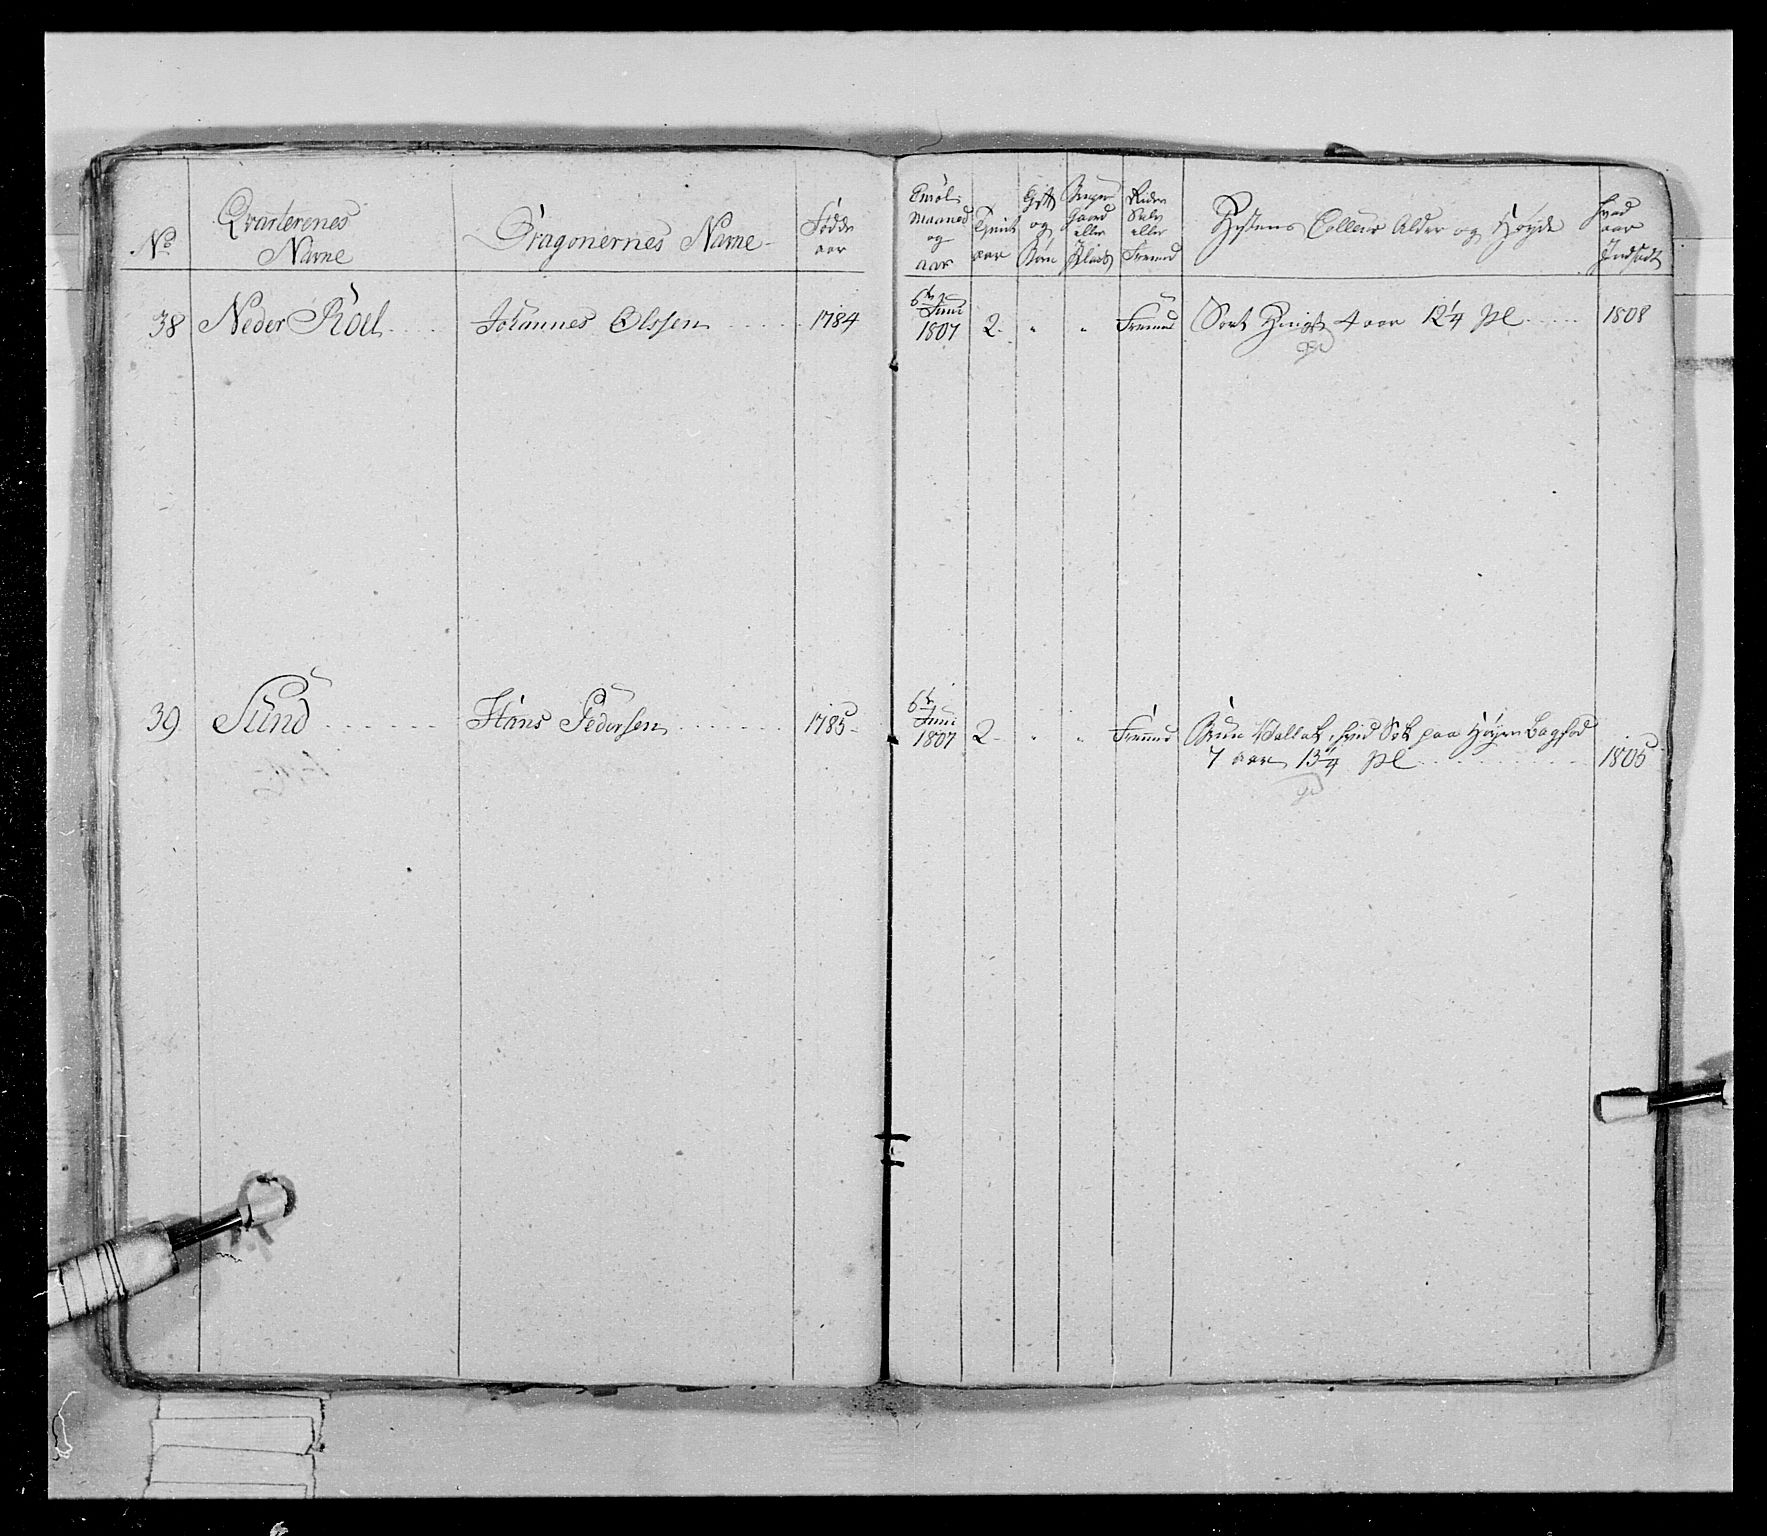 No
Qvarterenes
Navne
Dragonernes Navne
Fødde
aar
Enrol.
Maaned
og
aar
Tjent
aar
Gift
og
Børn
Gaard
eller
Plads
Rider
Selv
eller
Fremed
Hestens Colleur Alder og Høyde
Hvad
aar
Indsadt
38 Neder Roel .... Johannes Olssen .... 1784
6te
Juni
1807 2. " " Fremed Sort Hingst 4 aar 12 1/4 pl ..... 1808
39 Sund ...... Hans Pedersen ...... 1785
6te
Juni
1807 2 " " Fremed Brun Vallak, hvid Sok paa Høyre Bagfod
7 aar, 13 1/4 pl .......... 1805